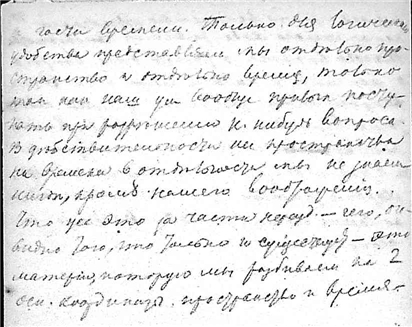 части времени. Только для логическ
удобства представляем мы отдельно про-
странство и отдельно время, только
так как наш ум вообще привык посту-
пать при разрешении к. нибудь вопроса
В действительности ни пространства
ни времени в отдельности мы не знаем
нигде, кроме нашего воображения.
Что же это за части — чего, оче-
видно того, что только и существует — это
материи, которую мы разбиваем на 2
оси координат: пространство и время.